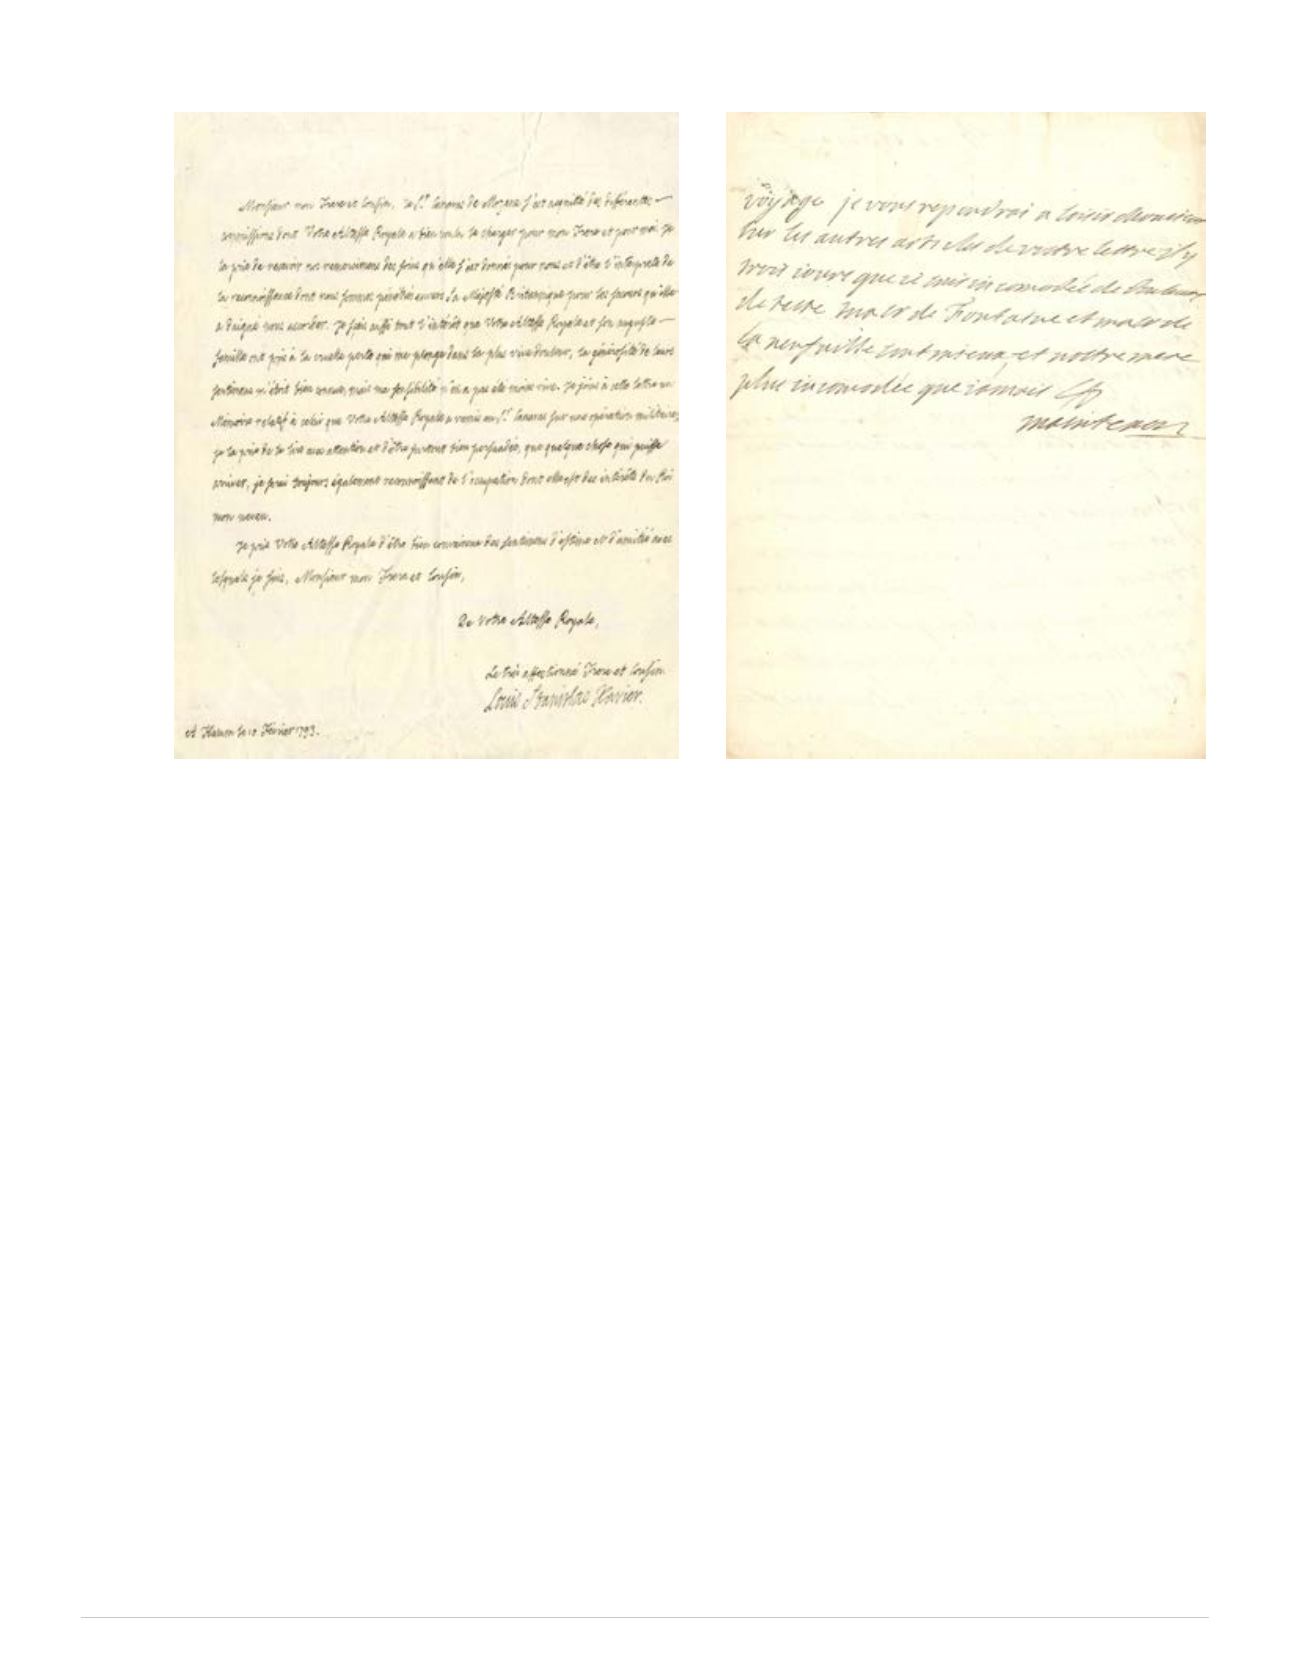 Monsieur mon Frere et Cousin, le S.r Canones de Mozans s'est acquitté des différentes
commissions dont Votre Altesse Royale a bien voulu le charger pour mon Frere et pour moi. Je
la prie de recevoir nos remercimens des soins qu'elle s'est donnés pour nous et d'être l'interprete de
la reconnoissance dont nous sommes pénétrés envers Sa Majesté Britannique pour les secours qu'elle
a daigné nous accorder. Je sais aussi tout l'intérêt que Votre Altesse Royale et son auguste
famille ont pris à la cruelle perte qui me plonge dans la plus vive douleur, la générosité de leurs
sentimens m'étoit bien connue, mais ma sensibilité n'en a pas été moins vive. Je joins à cette lettre un
Mémoire relatif à celui que Votre Altesse Royale a remis au S.r sur une opération militaire,
je la prie de le lire avec attention et d'être surtout bien persuadée, que quelque chose qui puisse
arriver, je serai toujours également reconnoissant de l'occupation dont elle est des intérêts du Roi
mon neveu.
Je prie Votre Altesse Royale d'être bien convaincue des sentimens d'estime et d'amitié avec
lesquels je suis, Monsieur mon Frere et Cousin,
De Votre Altesse Royale,
Le très affectionné Frere et Cousin.
Louis Stanislas Xavier.
A Hamm le 10 Février 1793.
voyage je vous repondrai a loisir
sur les autres articles de vostre lettre il y
trois iours que ie suis incomodée de
de teste ma sr de Fontaine et ma sr de
la neufuille sont mieux et nostre mere
plus incomodée que iamais
maintenon